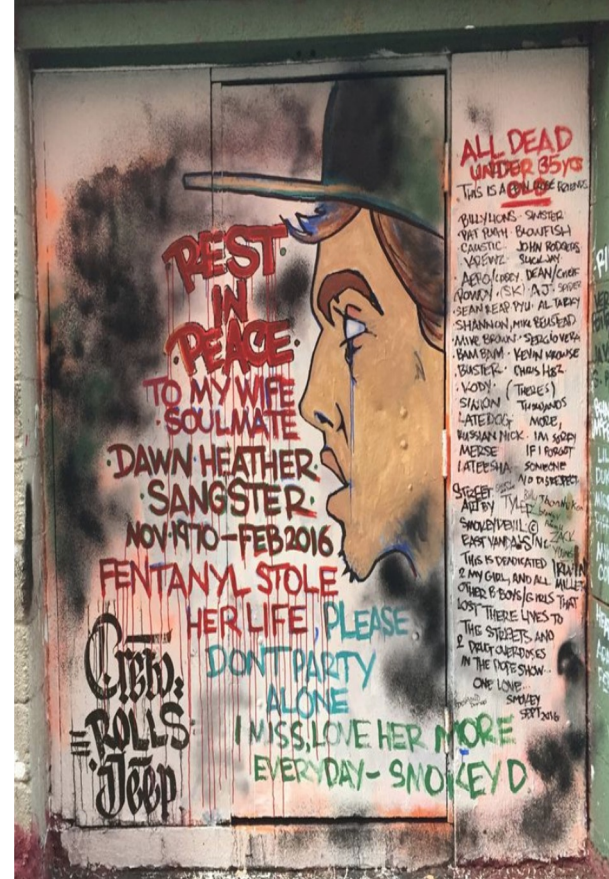 REST
IN
PEACE
TO MY WIFE
SOULMATE
DAWN HEATHER
SANGSTER
NOV·1970-FEB 2016
FENTANYL STOLE
HER LIFE, PLEASE
DON'T PARTY
ALONE
I MISS, LOVE HER MORE
EVERYDAY- SMOKEY D
CREW
ROLLS
DEEP
ALL DEAD
UNDER 35YRS
THIS IS A FRIENDS
BILLY LIONS · SINISTER
PAT PUGH · BLOWFISH
CAUSTIC · JOHN RODGERS
SLICK JAY
AERO/COREY DEAN/CHIEF
(SK) A.J.
SEAN REAP PYU · AL TARKY
SHANNON, MIKE
MIKE BROWN · SERGIO VERA
BAM BAM · KEVIN
BUSTER · CHRIS
KODY · (THERES)
THOUSANDS
LATEDOG MORE,
RUSSIAN NICK · IM SORRY
MERSE IF I FORGOT
LATEESHA SOMEONE
NO DISRESPECT
STREET
ART BY TYLER
SMOKEY DEVIL ©
EAST VAN ZACK
THIS IS DEADICATED
2 MY GIRL, AND ALL MILLER
OTHER B BOYS/GIRLS THAT
LOST THERE LIVES TO
THE STREETS AND
2 DRUG OVERDOSES
IN THE DOPE SHOW...
ONE LOVE...
SMOKEY
SEPT, 2016